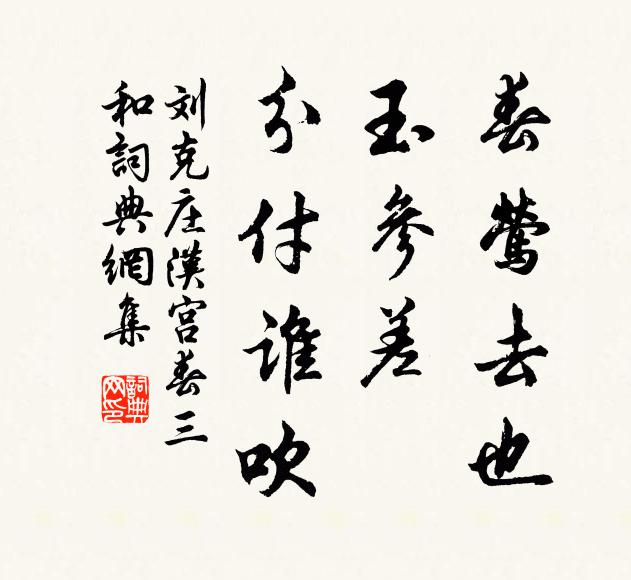 春鶯去也
玉參差
分付誰吹
刘克庄漢宮春三
和詞典網集
詞典
网印